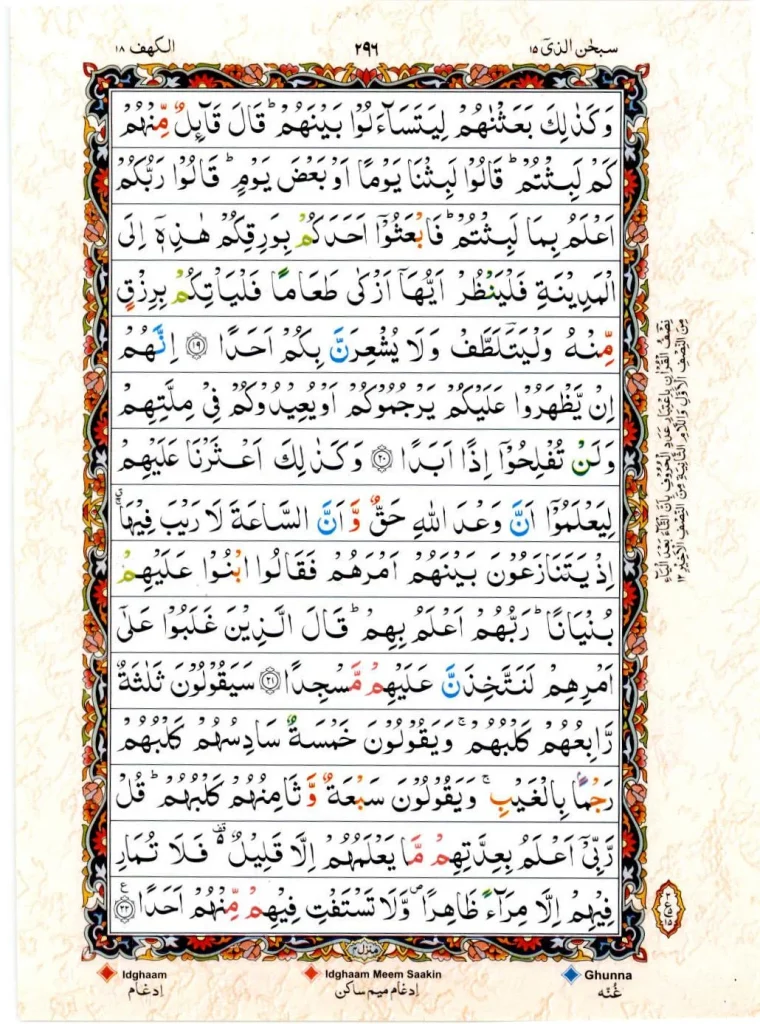 سبحٰن الذیٓ ۱۵
۲۹۶
الکهف ۱۸
وَكَذٰلِكَ بَعَثْنٰهُمْ لِيَتَسَآءَلُوْا بَيْنَهُمْ ؕ قَالَ قَآئِلٌ مِّنْهُمْ
كَمْ لَبِثْتُمْ ؕ قَالُوْا لَبِثْنَا يَوْمًا اَوْ بَعْضَ يَوْمٍ ؕ قَالُوْا رَبُّكُمْ
اَعْلَمُ بِمَا لَبِثْتُمْ ؕ فَابْعَثُوْۤا اَحَدَكُمْ بِوَرِقِكُمْ هٰذِهٖۤ اِلَى
الْمَدِيْنَةِ فَلْيَنْظُرْ اَيُّهَاۤ اَزْكٰى طَعَامًا فَلْيَاْتِكُمْ بِرِزْقٍ
مِّنْهُ وَلْيَتَلَطَّفْ وَلَا يُشْعِرَنَّ بِكُمْ اَحَدًا ۝۱۹ اِنَّهُمْ
اِنْ يَّظْهَرُوْا عَلَيْكُمْ يَرْجُمُوْكُمْ اَوْ يُعِيْدُوْكُمْ فِيْ مِلَّتِهِمْ
وَلَنْ تُفْلِحُوْۤا اِذًا اَبَدًا ۝۲۰ وَكَذٰلِكَ اَعْثَرْنَا عَلَيْهِمْ
لِيَعْلَمُوْۤا اَنَّ وَعْدَ اللّٰهِ حَقٌّ وَّاَنَّ السَّاعَةَ لَا رَيْبَ فِيْهَا ۚ
اِذْ يَتَنَازَعُوْنَ بَيْنَهُمْ اَمْرَهُمْ فَقَالُوا ابْنُوْا عَلَيْهِمْ
بُنْيَانًا ؕ رَبُّهُمْ اَعْلَمُ بِهِمْ ؕ قَالَ الَّذِيْنَ غَلَبُوْا عَلٰۤى
اَمْرِهِمْ لَنَتَّخِذَنَّ عَلَيْهِمْ مَّسْجِدًا ۝۲۱ سَيَقُوْلُوْنَ ثَلٰثَةٌ
رَّابِعُهُمْ كَلْبُهُمْ ۚ وَيَقُوْلُوْنَ خَمْسَةٌ سَادِسُهُمْ كَلْبُهُمْ
رَجْمًا بِالْغَيْبِ ۚ وَيَقُوْلُوْنَ سَبْعَةٌ وَّثَامِنُهُمْ كَلْبُهُمْ ؕ قُلْ
رَّبِّيْۤ اَعْلَمُ بِعِدَّتِهِمْ مَّا يَعْلَمُهُمْ اِلَّا قَلِيْلٌ ۫ فَلَا تُمَارِ
فِيْهِمْ اِلَّا مِرَآءً ظَاهِرًا ۪ وَّلَا تَسْتَفْتِ فِيْهِمْ مِّنْهُمْ اَحَدًا ۝۲۲
نِصْفُ الْقُرْاٰنِ بِاعْتِبَارِ عَدَدِ الْحُرُوْفِ بِاَنَّ التَّاءَ بَعْدَ الْيَاءِ
مِنَ النِّصْفِ الْاَوَّلِ وَاللَّامَ الثَّانِيَةَ مِنَ النِّصْفِ الْاَخِيْرِ ۱۲
منزل ۴
Idghaam
Idghaam Meem Saakin
Ghunna
اِدغام
اِدغام میم ساکن
غُنّه